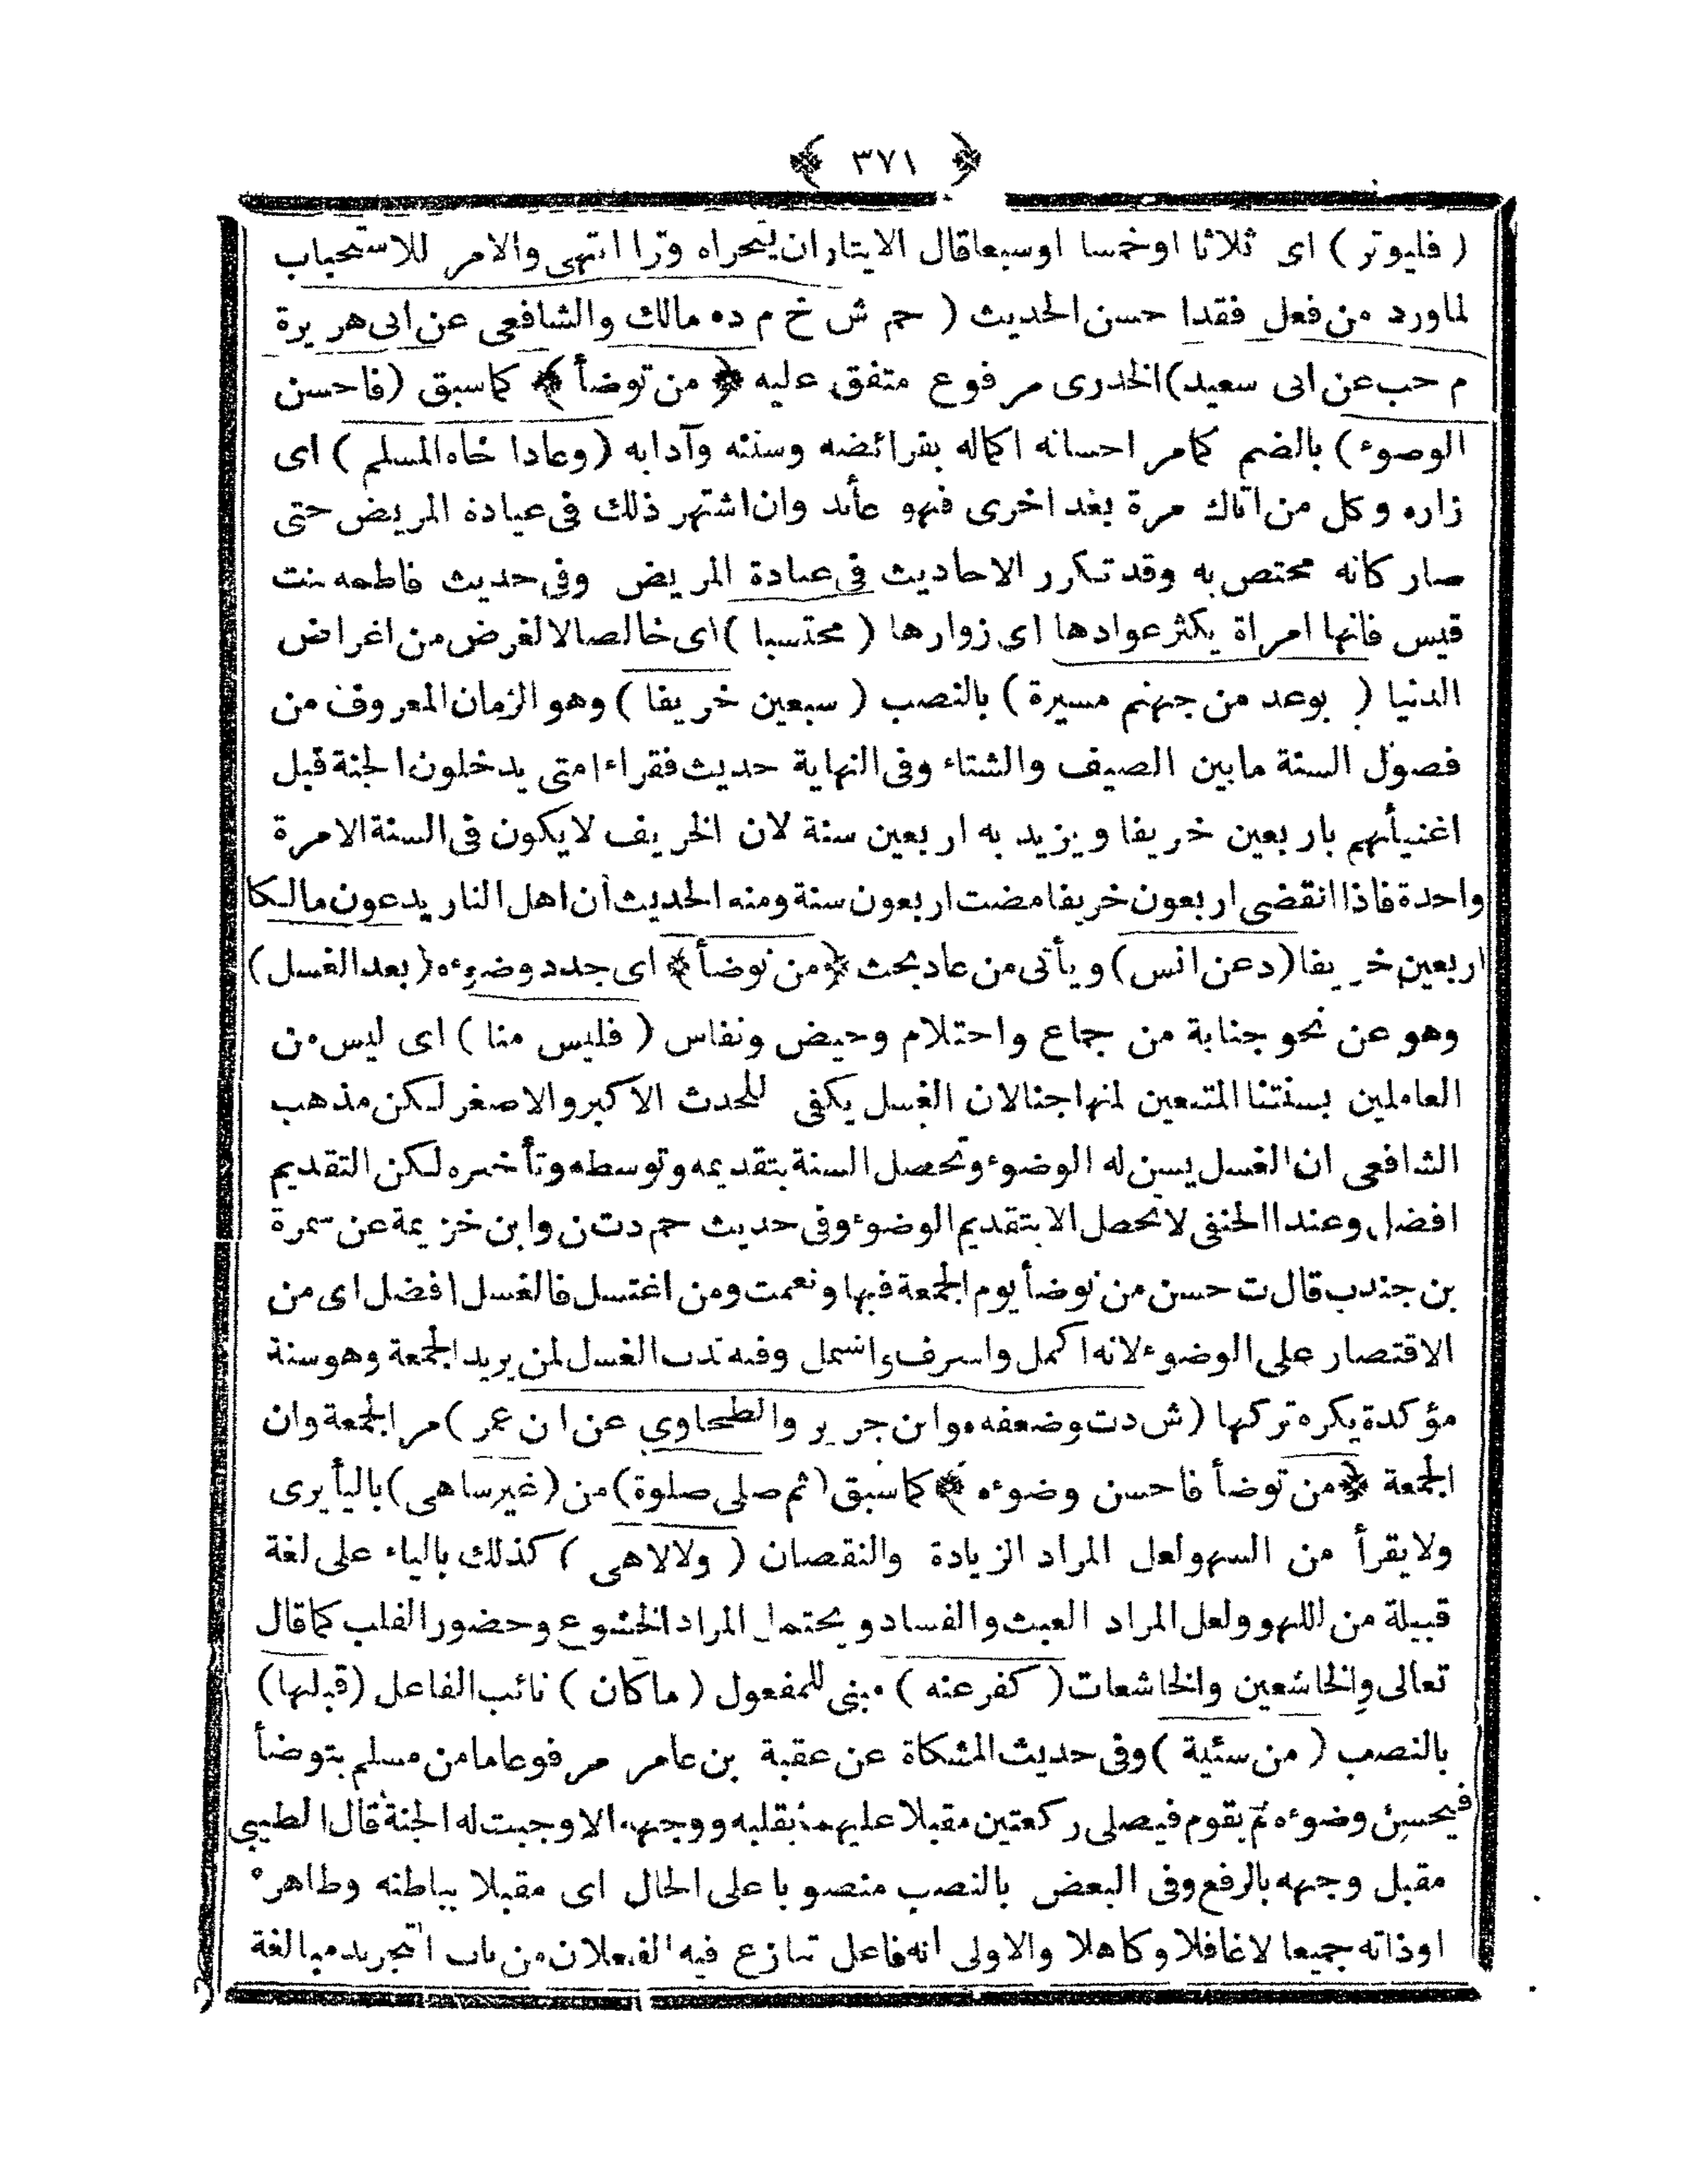 ﴿ ٣٧١ ﴾
( فليوتر ) اى ثلاثا اوخمسا اوسبعا قال الايتار ان يتحراه وترا انتهى والامر للاستحباب
لماورد من فعل فقدا حسن الحديث ( حم ش خ م ده مالك والشافعى عن ابى هريرة
م حب عن ابى سعيد ) الخدرى مرفوع متفق عليه ﴿ من توضأ ﴾ كماسبق ( فاحسن
الوصوء ) بالضم كمامر احسانه اكماله بفرائضه وسننه وآدابه ( وعادا خاه المسلم ) اى
زاره وكل من اتاك مرة بعد اخرى فهو عأئد وان اشتهر ذلك فى عيادة المريض حتى
صار كأنه مختص به وقد تكرر الاحاديث فى عيادة المريض وفى حديث فاطمه بنت
قيس فانها امراة يكثر عوادها اى زوارها ( محتسبا ) اى خالصالا لغرض من اغراض
الدنيا ( بوعد من جهنم مسيرة ) بالنصب ( سبعين خريفا ) وهو الزمان المعروف من
فصول السنة مابين الصيف والشتاء وفى النهاية حديث فقراء امتى يدخلون الجنة قبل
اغنيأئهم باربعين خريفا ويزيد به اربعين سنة لان الخريف لايكون فى السنة الامرة
واحدة فاذا انقضى اربعون خريفا مضت اربعون سنة ومنه الحديث أن اهل النار يدعون مالكا
اربعين خريفا ( د عن انس ) ويأتى من عاد بحث ﴿ من توضأ ﴾ اى جدد وضوءه ( بعد الغسل )
وهو عن نحو جنابة من جماع واحتلام وحيض ونفاس ( فليس منا ) اى ليس من
العاملين بسنتنا المتبعين لمنهاجنا لان الغسل يكفى للحدث الاكبر والاصغر لكن مذهب
الشافعى ان الغسل يسن له الوضوء وتحصل السنة بتقديمه وتوسطه وتأخيره لكن التقديم
افضل وعندا الحنفى لاتحصل الابتقديم الوضوء وفى حديث حم دت ن وابن خزيمة عن سمرة
بن جندب قال ت حسن من توضأ يوم الجمعة فبها ونعمت ومن اغتسل فالغسل افضل اى من
الاقتصار على الوضوء لانه اكمل واسرف واشمل وفيه ندب الغسل لمن يريد الجمعة وهو سنة
مؤكدة يكره تركها ( ش دت وضعفه ه وابن جرير والطحاوى عن ابن عمر ) مر الجمعة وان
الجمعة ﴿ من توضأ فاحسن وضوءه ﴾ كماسبق ( ثم صلى صلوة ) من ( غير ساهى ) باليأ يرى
ولايقرأ من السهو لعل المراد الزيادة والنقصان ( ولالاهى ) كذلك بالياء على لغة
قبيلة من اللهو ولعل المراد العبث والفساد ويحتمل المراد الخشوع وحضور القلب كماقال
تعالى والخاشعين والخاشعات ( كفر عنه ) مبنى للمفعول ( ماكان ) نائب الفاعل ( قبلها )
بالنصب ( من سئية ) وفى حديث المشكاة عن عقبة بن عامر مرفوعا مامن مسلم يتوضأ
فيحسن وضوءه ثم يقوم فيصلى ركعتين مقبلا عليهما بقلبه ووجهه الاوجبت له الجنة قال الطيبى
مقبل وجهه بالرفع وفى البعض بالنصب منصوبا على الحال اى مقبلا بباطنه وظاهره
اوذاته جميعا لاغافلا وكاهلا والاولى انه فاعل تنازع فيه الفعلان من باب التجريد مبالغة